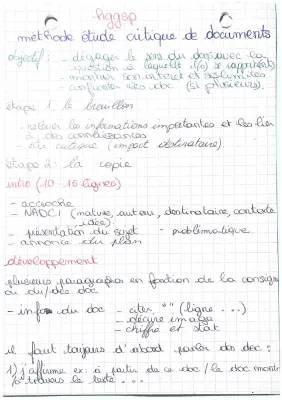 hggsp
méthode étude critique de documents
objectif : - dégager le sens du doc avec la
question à laquelle il(s) se rapporte(nt)
- montrer son intérêt et ses limites
- confronter les doc (si plusieurs).
étape 1 : le brouillon
- relever les informations importantes et les lier
à des connaissances
- être critique (impact destinataire)
étape 2 : la copie
intro (10 - 15 lignes)
- accroche
- NADCI (nature, auteur, destinataire, contexte
idée)
- présentation du sujet - problématique
- annonce du plan
développement
plusieurs paragraphes en fonction de la consigne
ou du/des doc
- info du doc - citer " " (ligne ...)
- décrire image
- chiffre et stat
il faut toujours d'abord parler du doc :
1) j'affirme ex: à partir de ce doc / le doc montre
à travers le texte ...